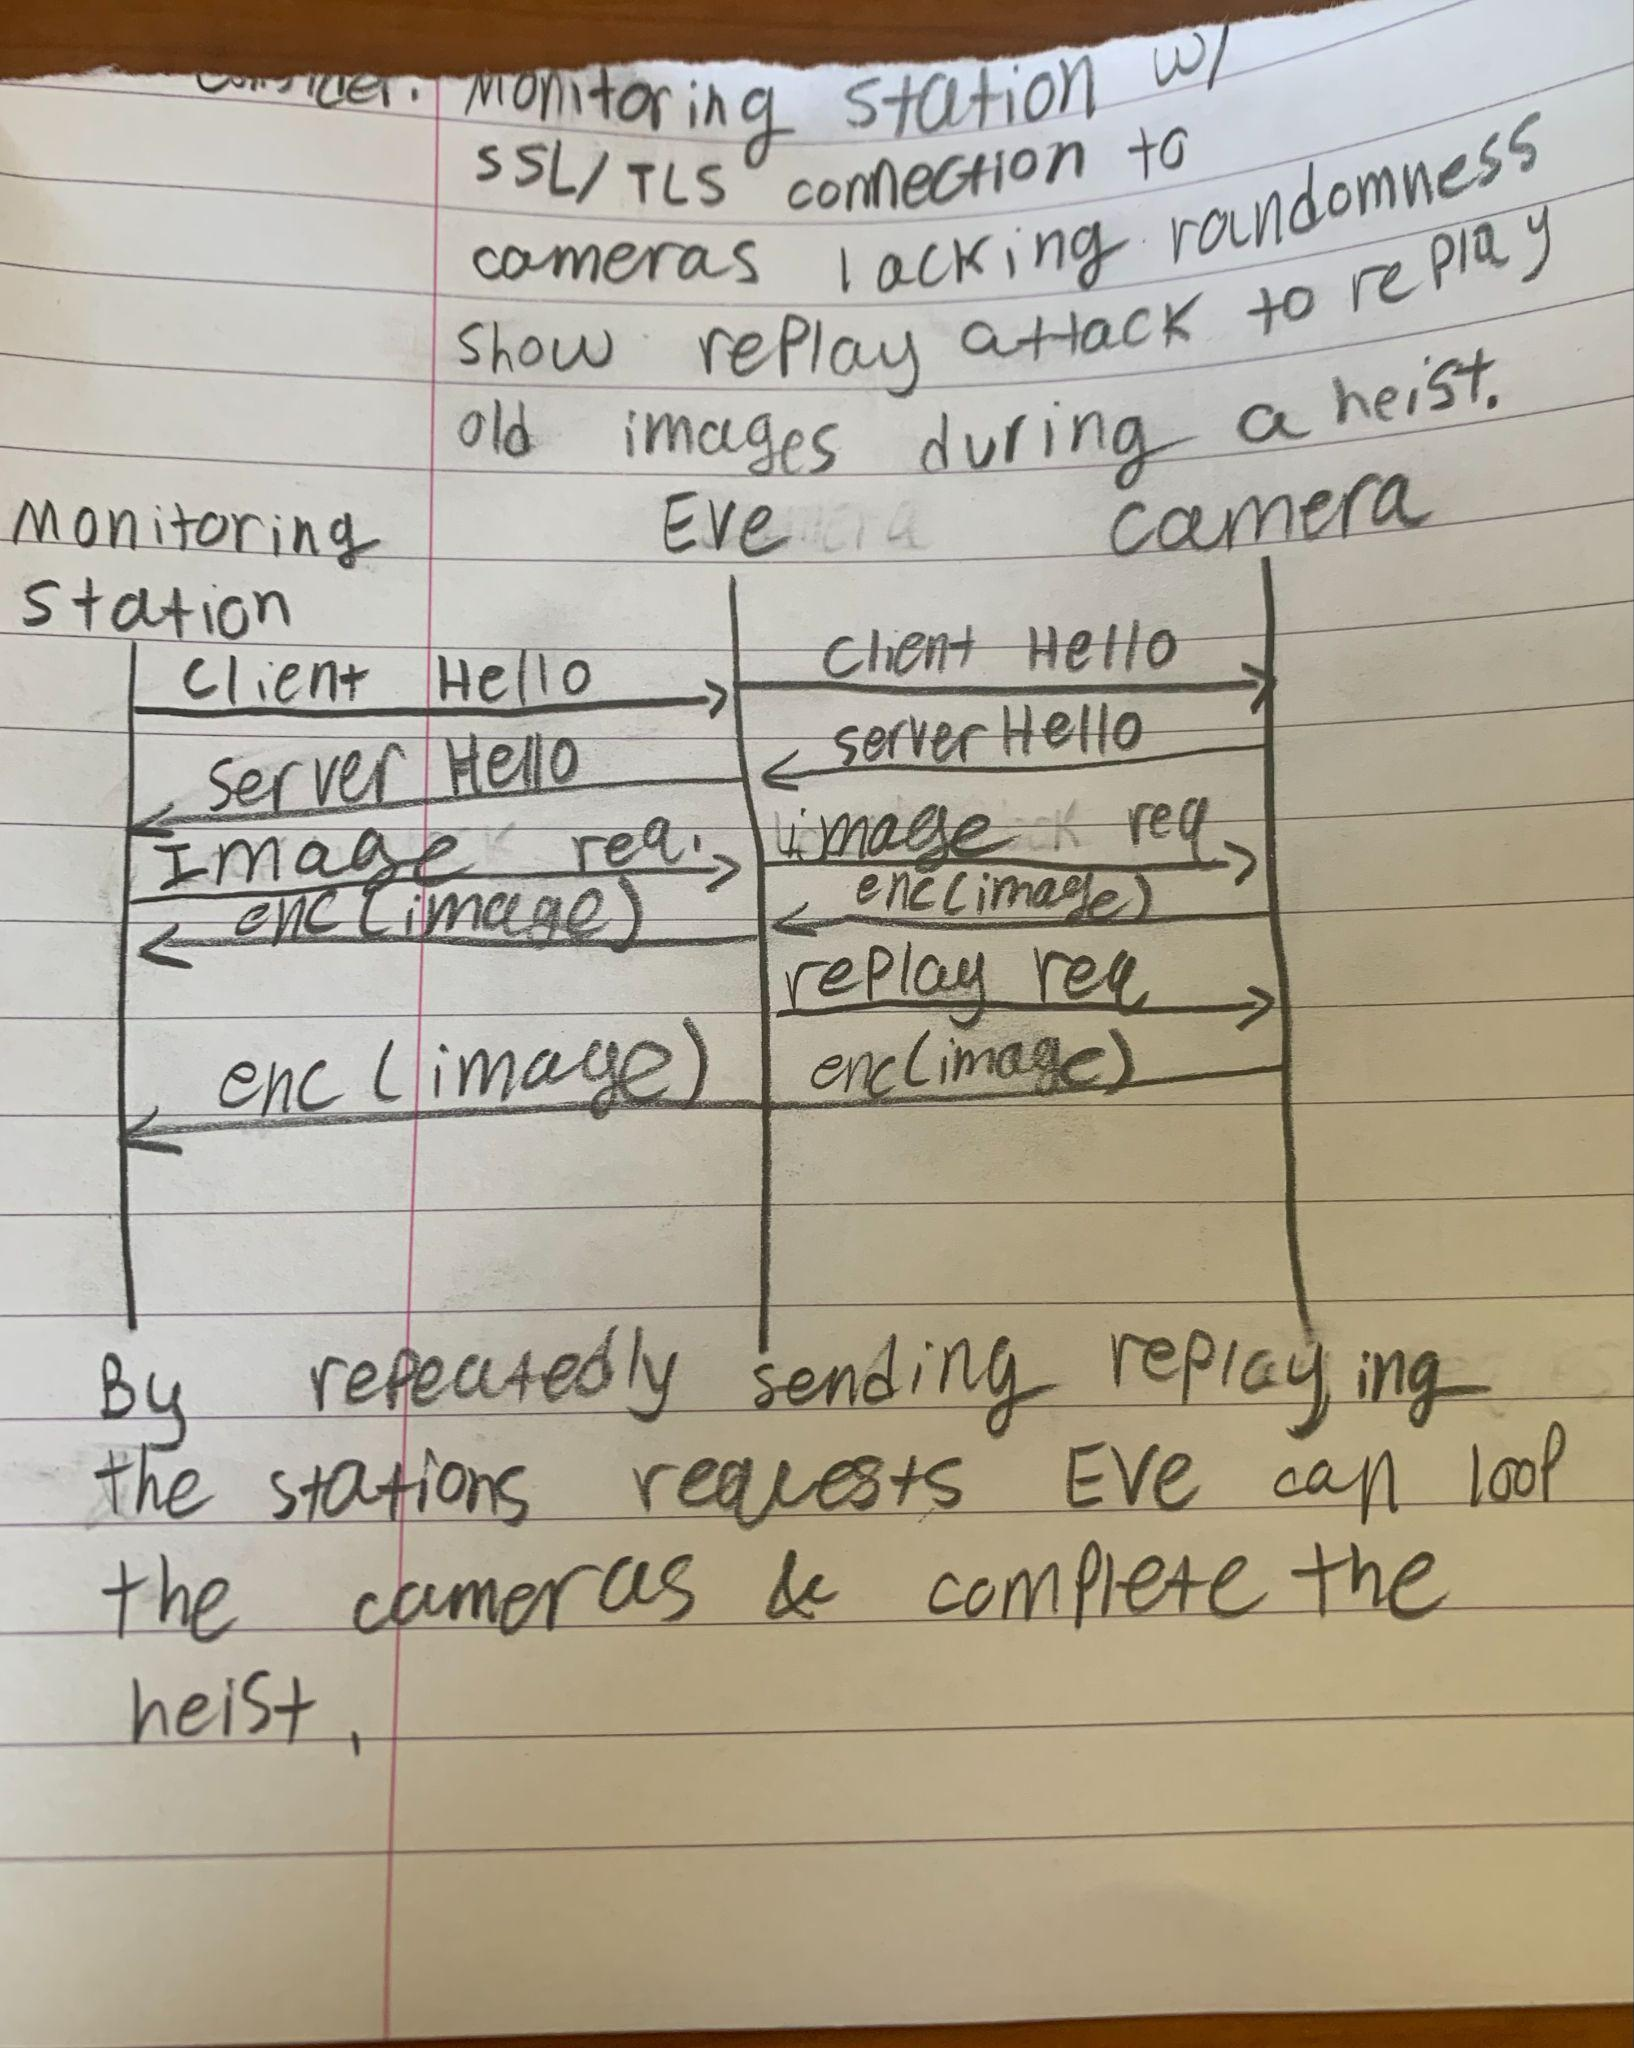 Consider: Monitoring station w/
SSL/TLS connection to
cameras lacking randomness
show replay attack to replay
old images during a heist.
Monitoring Eve camera
station
Client Hello Client Hello
server Hello server Hello
Image req. image req
enc(image) enc(image)
replay req
enc (image) enc(image)
By repeatedly sending replaying
the stations requests Eve can loop
the cameras & complete the
heist.